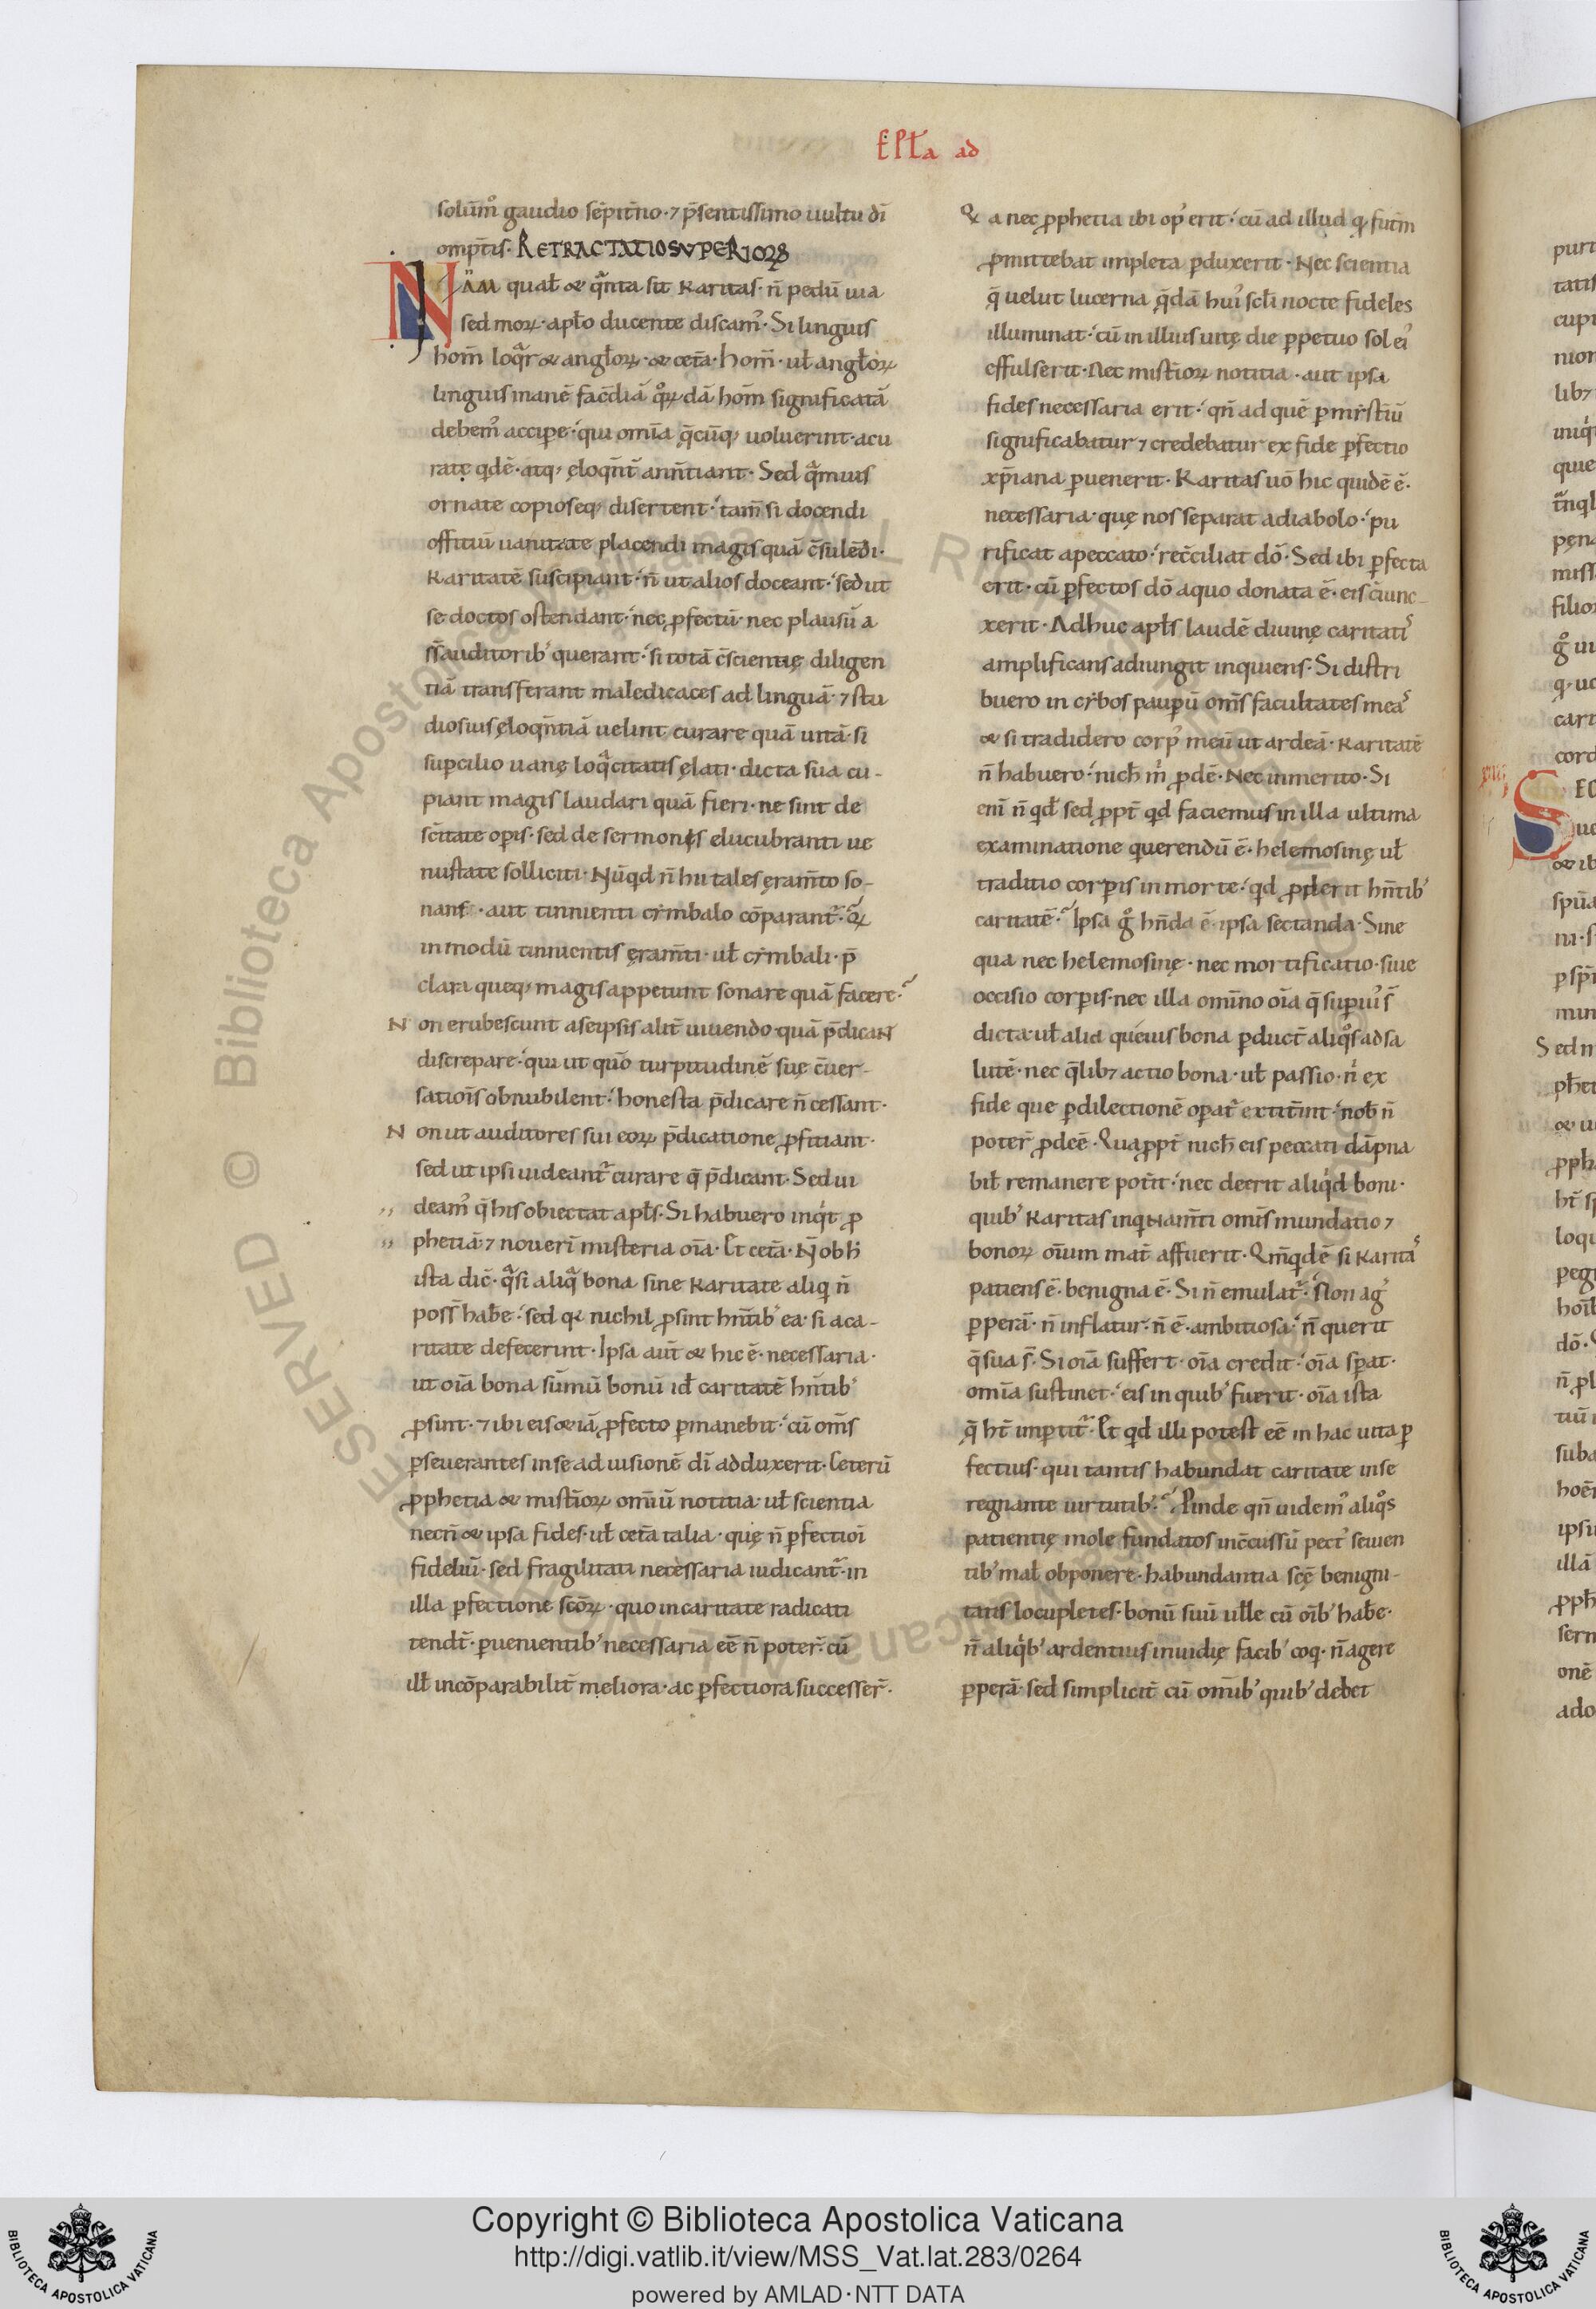 EPLa ad
solūm̊ gaudio sēpit̄no · ⁊ p̄sentissimo uultu dī
omp̄tis · RETRACTATIO SVPERIORꝫ
NĀM qual̄ & qᷓnta sit karitas · n̄ pedū uia
sed moꝝ · apl̄o ducente discam᾿ · Si linguis
hom̄ loqᷓr & angl̄oꝝ · & cet̄a · hom̄ · ul̄ angl̄oꝝ
linguis inanē fac̄diā qͦꝝdā hom̄ significatā
debem᾿ accipe · qui om̄ia q̄cūq; uoluerint · acu
ratę qdē · atq; ęloqn̄t̄ ann̄tiant · Sed qᷓmuis
ornate copioseq; disertent · tam̄ si docendi
offitiū uanitate placendi magis quā c̄sulēdi ·
Karitatē suscipiant · n̄ ut alios doceant · sed ut
se doctos ostendant · nec ꝓfectū · nec plausū a
ss̄ auditorib᾿ querant · si totā c̄scientię diligen
tiā transferant maledicaces ad linguā · ⁊ stu
diosius ęloqn̄tiā uelint curare quā uitā · si
sup̄cilio uanę loqᷓcitatis ęlati · dicta sua cu-
piant magis laudari quā fieri · ne sint de
sc̄itate op̄is · sed de sermonis elucubranti ue
nustate solliciti · Nūqd n̄ hii tales ęram̄to so-
nans · aut tinnienti cymbalo cōparant᷑ ·
in modū tinnientis ęram̄ti · ul̄ cymbali · p̄
clara queq; magis appetunt sonare quā facere ·
Non erubescunt a seipsis alit̄ uiuendo quā p̄dicaN
discrepare · qui ut quō turpitudinē suę c̄uer-
satiōis obnubilent · honesta p̄dicare n̄ cessant ·
Non ut auditores sui eoꝝ p̄dicatione ꝓfitiant ·
sed ut ipsi uideant᷑ curare q̄ p̄dicant · Sed ui
,, deam᾿ q̄ his obiectat apl̄s · Si habuero inqͥt ꝓ
,, phetiā ⁊ nouerī misteria oīa · Et cet̄a · N̄ ob h̄
ista dic̄ · qᷓsi aliqᷓ bona sine karitate aliq n̄
poss̄ hab̄e · sed q& nichil ꝓsint hn̄tib᾿ ea · si a ca-
ritate defecerint · Ipsa aūt & hic ē · necessaria ·
ut oīa bona sūmū bonū id̄ caritatē hn̄tib᾿
ꝓsint · ⁊ ibi eis & iā ꝓfecto ꝑmanebit · cū om̄s
ꝑseuerantes in se ad uisionē dī adduxerit · Ceterū
ꝓphetia & mist̄ioꝝ om̄iū notitia · ul̄ scientia
necn̄ & ipsa fides · ul̄ cet̄a talia · quę n̄ ꝑfectioi
fideliū · sed fragilitati necessaria iudicant᷑ · in
illa ꝑfectione sc̄oꝝ · quo in caritate radicati
tendt̄ · ꝑuenientib᾿ necessaria eē n̄ poter̄ · cū
ill̄ incōparabilit̄ meliora · ac ꝑfectiora successer̄ ·
Q a nec ꝓphetia ibi op᾿ erit · cū ad illud q futm̄
ꝓmittebat impleta ꝑduxerit · Nec scientia
q̄ uelut lucerna q̄dā hui᾿ scl̄i nocte fideles
illuminat · cū in illius uitę die ꝑpetuo sol ei᾿
effulserit · Nec mist̄ioꝝ notitia · aut ipsa
fides necessaria erit · qn̄ ad quē ꝑ myst̄iū
significabatur ⁊ credebatur ex fide ꝑfectio
xp̄iana ꝑuenerit · Karitas uō hic quidē ē ·
necessaria · quę nos separat a diabolo · pu
rificat a peccato · rec̄ciliat dō · Sed ibi ꝑfecta
erit · cū ꝑfectos dō a quo donata ē · eis c̄iunc-
xerit · Adhuc apl̄s laudē diuinę caritati᾿
amplificans adiungit inquiens · Si distri
buero in cybos pauꝑū om̄s facultates mea᾿
& si tradidero corp᾿ meū ut ardeā · karitatē
n̄ habuero · nich̄ m̄ ꝓdē · Nec inmerito · Si
enī n̄ qd̄ sed ꝓpt̄ qd faciemus in illa ultima
examinatione querendū ē · helemosinę ul̄
traditio corꝑis in morte · qd ꝓderit hn̄tib᾿
caritatē · Ipsa gͦ hn̄da ē · ipsa sectanda · Sine
qua nec helemosinę · nec mortificatio · siue
occisio corꝑis · nec illa omīno oīa q̄ suꝑi᾿ s̄
dicta · ul̄ alia queuis bona ꝑduct̄ aliqͦs ad sa
lutē · nec q̄libꝫ actio bona · ul̄ passio · nͥ ex
fide que ꝑ dilectionē oꝑat᷑ extit̄int · nob̄ n̄
poter̄ ꝓdeē · Quaꝓpt̄ nich̄ eis peccati dāpna
bil̄ remanere pot̄it · nec deerit aliqͥd boni ·
quib᾿ karitas inqNam̄ti omīs mundatio ⁊
bonoꝝ oīum mat̄ affuerit · Qm̄qdē si karita᾿
patiens ē · benigna ē · Si n̄ emulat᷑ · Non ag᾿
ꝑperā · n̄ inflatur · n̄ ē · ambitiosa · n̄ querit
q̄ sua s̄ · Si oīa suffert · oīa credit · oīa sꝑat ·
om̄ia sustinet · eis in quib᾿ fuerit · oīa ista
q̄ ht̄ imꝑtit᷑ · Et qd illi potest eē in hac uita ꝑ
fectius · qui tantis habundat caritate in se
regnante uirtutib᾿ · Pinde qn̄ uidem᾿ aliqͦs
patientię mole fundatos inc̄cussū pect᾿ seuien
tib᾿ mal̄ obponere · habundantia sc̄ę benigni-
tatis locupletes · bonū suū uelle cū oīb᾿ hab̄e ·
n̄ aliqͥb᾿ ardentius inuidię facib᾿ coq · n̄ agere
ꝑperā · sed simplicit̄ cū omīb᾿ quib᾿ debet
Copyright © Biblioteca Apostolica Vaticana
http://digi.vatlib.it/view/MSS_Vat.lat.283/0264
powered by AMLAD·NTT DATA
BIBLIOTECA APOSTOLICA VATICANA
BIBLIOTECA APOSTOLICA VATICANA